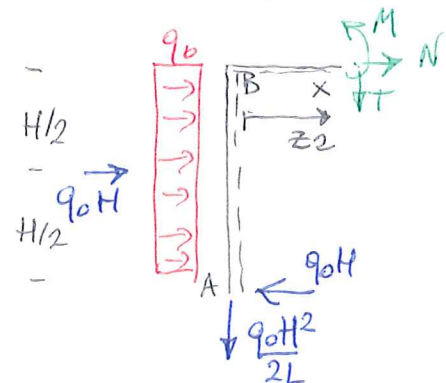 q0
M
N
T
B
X
z2
H/2
q0H
H/2
A
q0H
q0H²
2L